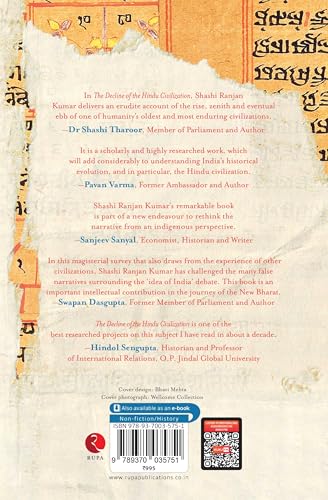 In The Decline of the Hindu Civilization, Shashi Ranjan
Kumar delivers an erudite account of the rise, zenith and eventual
ebb of one of humanity's oldest and most enduring civilizations.
—Dr Shashi Tharoor, Member of Parliament and Author
It is a scholarly and highly researched work, which
will add considerably to understanding India's historical
evolution, and in particular, the Hindu civilization.
—Pavan Varma, Former Ambassador and Author
Shashi Ranjan Kumar's remarkable book
is part of a new endeavour to rethink the
narrative from an indigenous perspective.
—Sanjeev Sanyal, Economist, Historian and Writer
In this magisterial survey that also draws from the experience of other
civilizations, Shashi Ranjan Kumar has challenged the many false
narratives surrounding the 'idea of India' debate. This book is an
important intellectual contribution in the journey of the New Bharat.
—Swapan Dasgupta, Former Member of Parliament and Author
The Decline of the Hindu Civilization is one of the
best researched projects on this subject I have read in about a decade.
—Hindol Sengupta, Historian and Professor
of International Relations, O.P. Jindal Global University
Cover design: Bhavi Mehta
Cover photograph: Wellcome Collection
Also available as an e-book
Non-fiction/History
ISBN 978-93-7003-575-1
9 789370 035751
₹995
RUPA
www.rupapublications.co.in